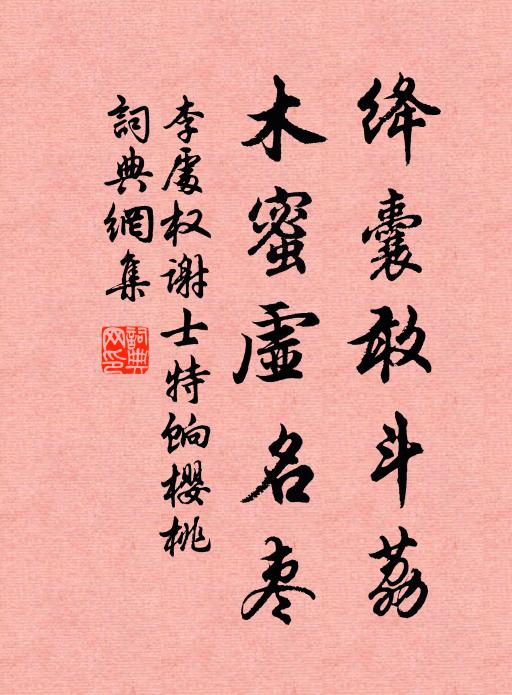 绛囊敢斗荔
木蜜虚名枣
李處权谢士特饷樱桃
詞典網集
詞典
网印